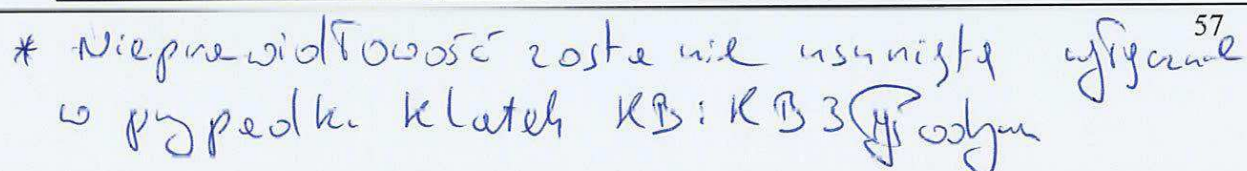 57
* Nieprawidłowość zostanie usunięta wyłącznie
w przypadku klatek KB i KB3